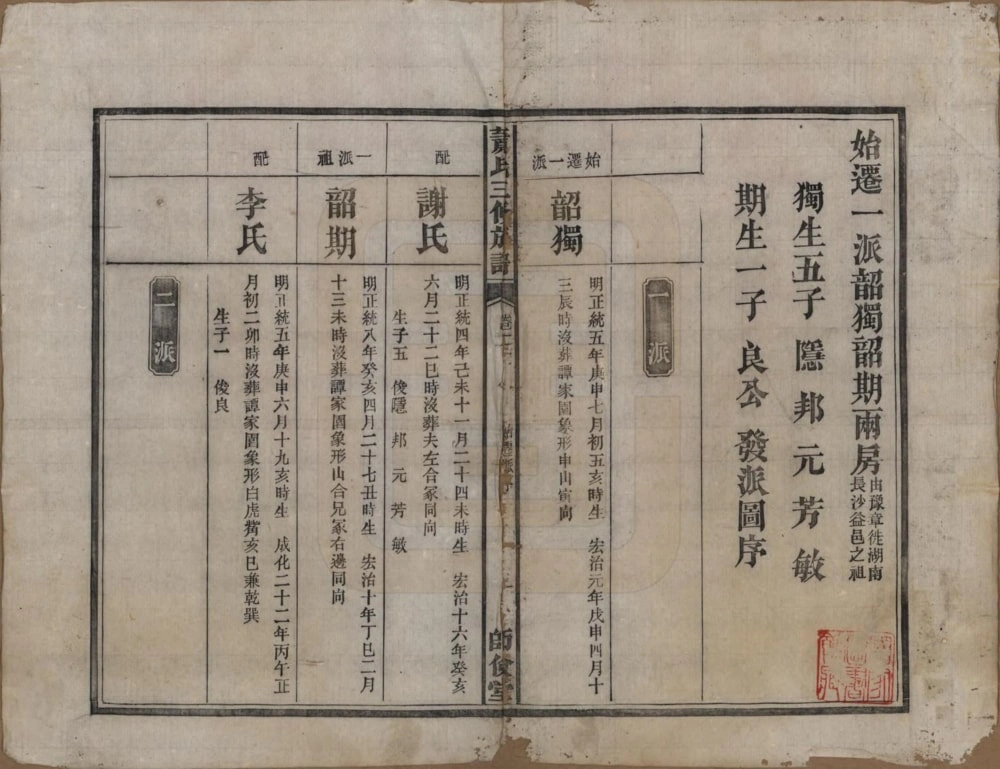 始遷一派韶獨韶期兩房由豫章徙湖南
長沙益邑之祖
獨生五子隱邦元芳敏
期生一子良公發派圖序
一派
始遷一派
韶獨
明正統五年庚申七月初五亥時生 宏治元年戊申四月十
三辰時沒葬譚家園象形申山寅向
蕭氏三修族譜
師儉堂
配
謝氏
明正統四年己未十一月二十四未時生 宏治十六年癸亥
六月二十二巳時沒葬夫左合冢同向
生子五 俊隱 邦 元 芳 敏
一派祖
韶期
明正統八年癸亥四月二十七丑時生 宏治十年丁巳二月
十三未時沒葬譚家園象形山合兄冢右邊同向
配
李氏
明正統五年庚申六月十九亥時生 成化二十二年丙午正
月初二卯時沒葬譚家園象形白虎觜亥巳兼乾巽
生子一 俊良
二派